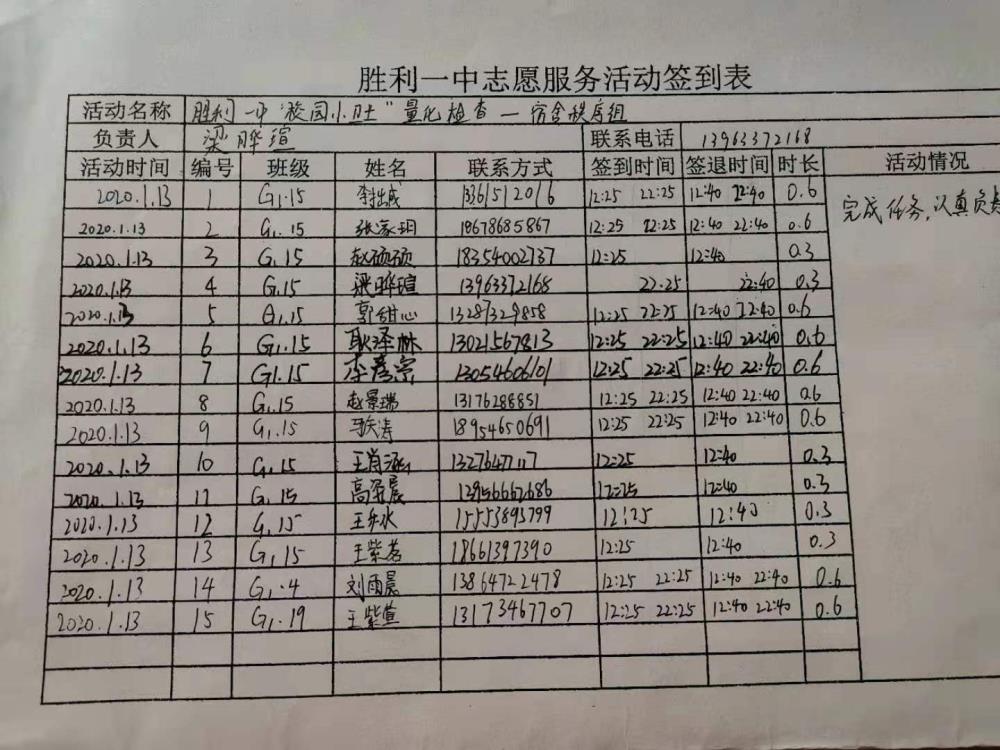 胜利一中志愿服务活动签到表
活动名称 胜利一中“校园小卫士”量化检查—宿舍秩序组
负责人 梁晔瑄 联系电话 13963372168
活动时间 编号 班级 姓名 联系方式 签到时间 签退时间 时长 活动情况
2020.1.13 1 G1.15 12:25 22:25 12:40 22:40 0.6 完成任务,认真负责
2020.1.13 2 G1.15 张家玥 18678685867 12:25 22:25 12:40 22:40 0.6
2020.1.13 3 G1.15 赵硕硕 18354002737 12:25 12:40 0.3
2020.1.13 4 G1.15 梁晔瑄 13963372168 22:25 22:40 0.3
2020.1.13 5 G1.15 郭甜心 13287329858 12:25 22:25 12:40 22:40 0.6
2020.1.13 6 G1.15 耿泽林 13021567813 12:25 22:25 12:40 22:40 0.6
2020.1.13 7 G1.15 李彦宗 13054606101 12:25 22:25 12:40 22:40 0.6
2020.1.13 8 G1.15 赵景瑞 13176288851 12:25 22:25 12:40 22:40 0.6
2020.1.13 9 G1.15 18954650691 12:25 22:25 12:40 22:40 0.6
2020.1.13 10 G1.15 王肖涵 12:25 12:40 0.3
2020.1.13 11 G1.15 12:25 12:40 0.3
2020.1.13 12 G1.15 15553893799 12:25 12:40 0.3
2020.1.13 13 G1.15 王紫茗 18661397390 12:25 12:40 0.3
2020.1.13 14 G1.4 刘雨晨 13864722478 12:25 22:25 12:40 22:40 0.6
2020.1.13 15 G1.19 王紫萱 13173467707 12:25 22:25 12:40 22:40 0.6